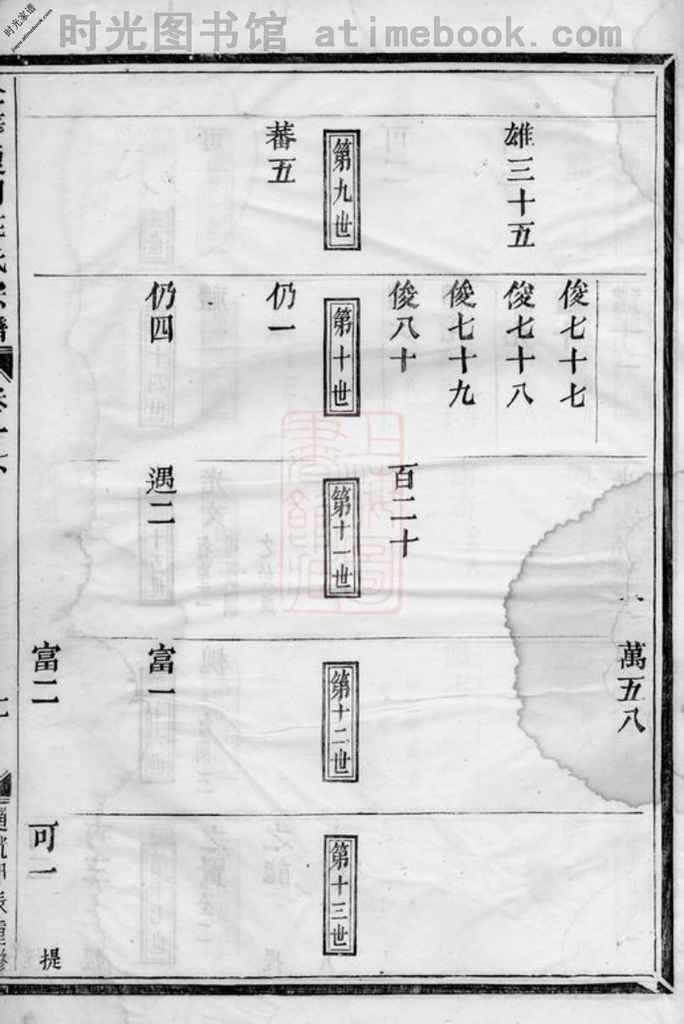 时光图书馆 atimebook.com
时光家谱
www.atimebook.com
萬五八
俊七十七
雄三十五
俊七十八
俊七十九
俊八十
百二十
第九世
第十世
第十一世
第十二世
第十三世
蕃五
仍一
仍四
遇二
富一
富二
可一
提